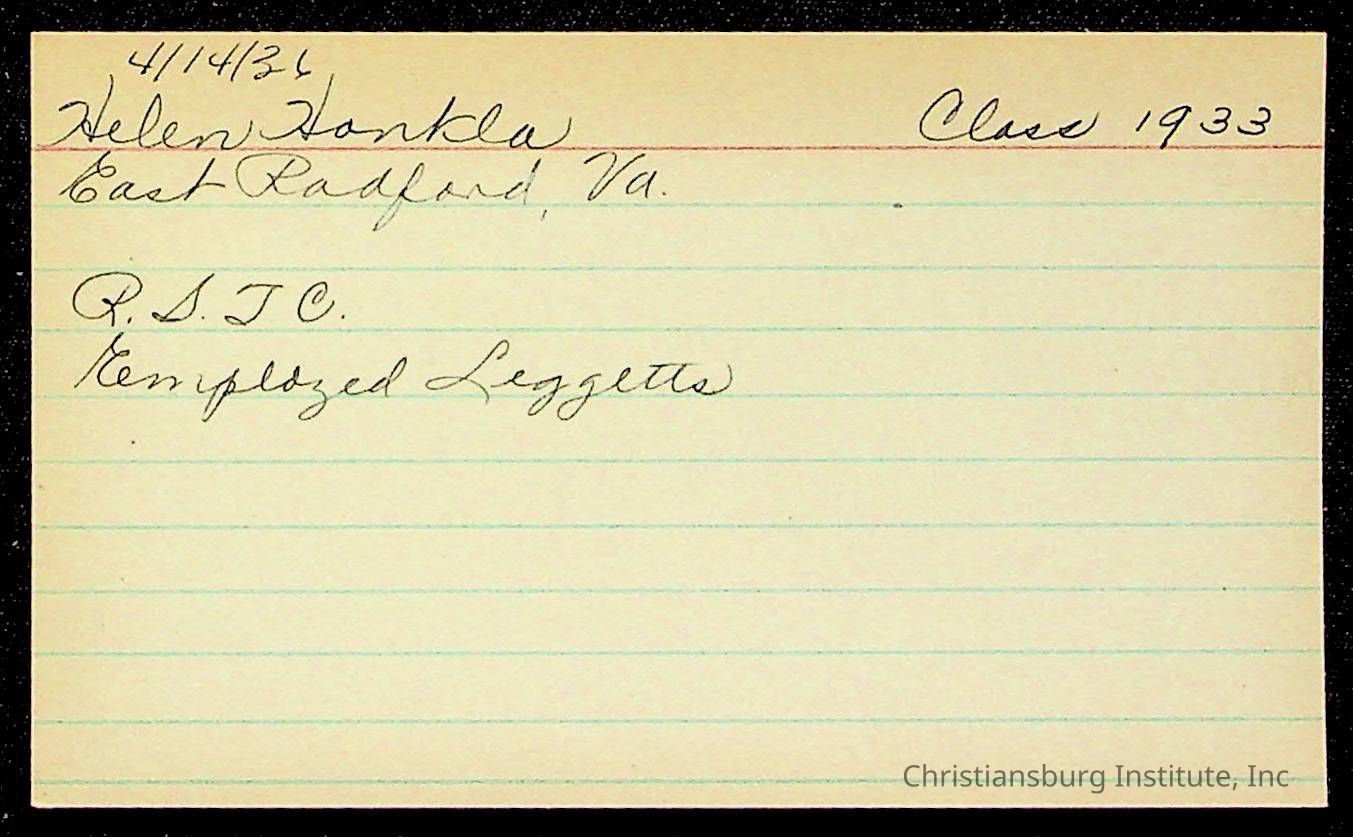 4/14/36
Helen Honkla Class 1933
East Radford, Va.
R. S. T C.
Employed Leggetts
Christiansburg Institute, Inc